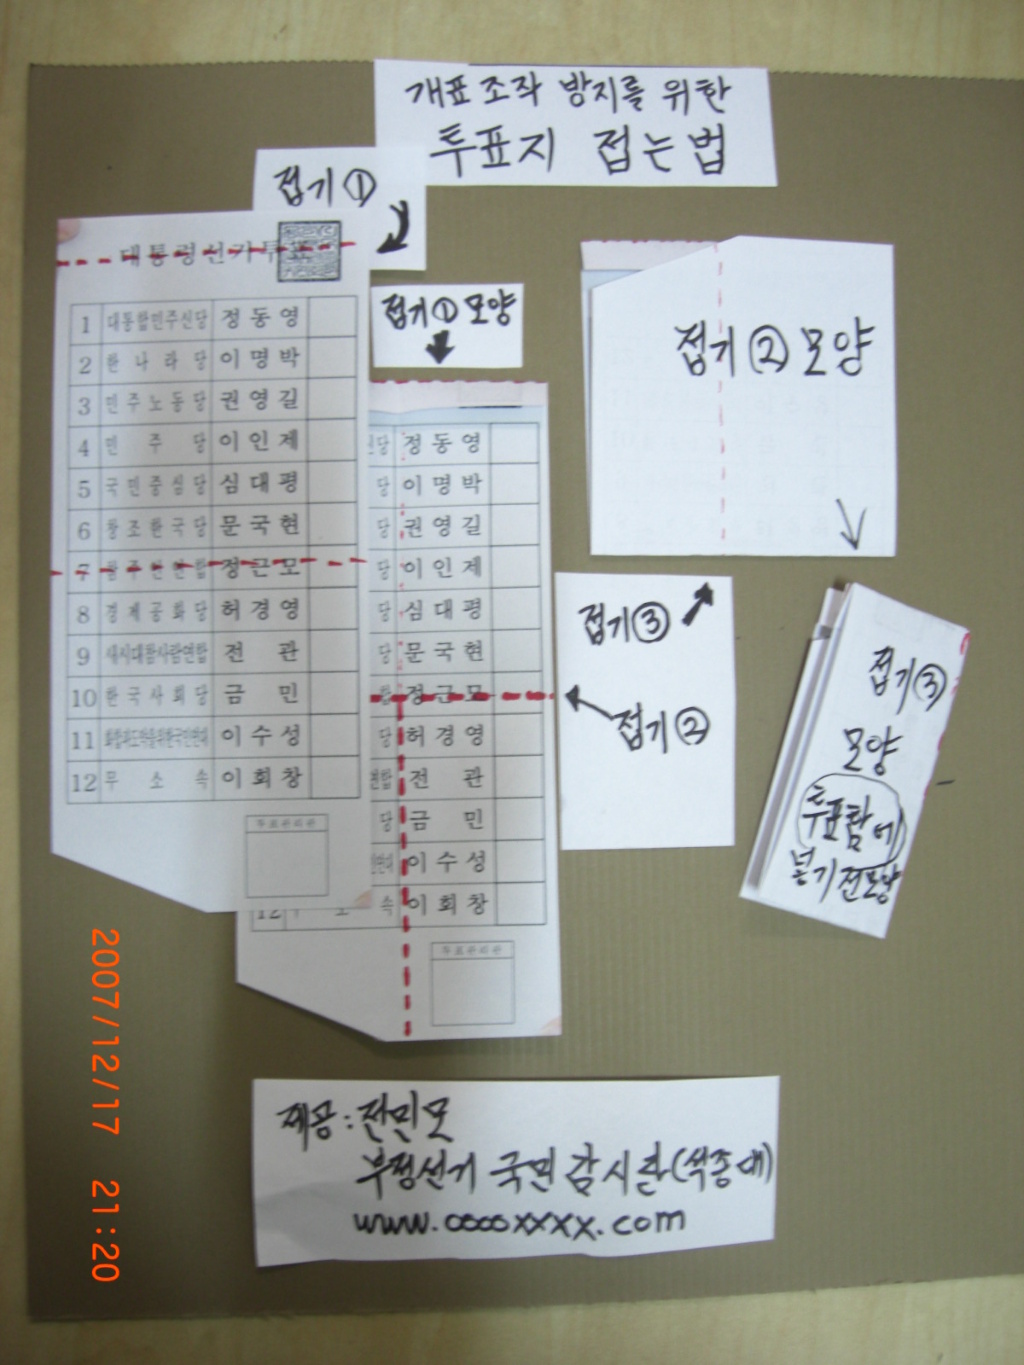 개표 조작 방지를 위한
투표지 접는법
접기 ①
대통령선거투표
1 대통합민주신당 정동영
2 한나라당 이명박
3 민주노동당 권영길
4 민주당 이인제
5 국민중심당 심대평
6 창조한국당 문국현
7 참주인연합 정근모
8 경제공화당 허경영
9 새시대참사람연합 전관
10 한국사회당 금민
11 화합과도약을위한국민연대 이수성
12 무소속 이회창
투표관리관
접기 ① 모양
신당 정동영
당 이명박
당 권영길
당 이인제
당 심대평
당 문국현
합 정근모
당 허경영
연합 전관
당 금민
민연대 이수성
12 무소속 이회창
투표관리관
접기 ② 모양
접기 ③
접기 ②
접기 ③
모양
투표함에
넣기 전 모양
제공 : 전민모
부정선거 국민감시단(석종대)
www.ooooxxxx.com
2007/12/17 21:20